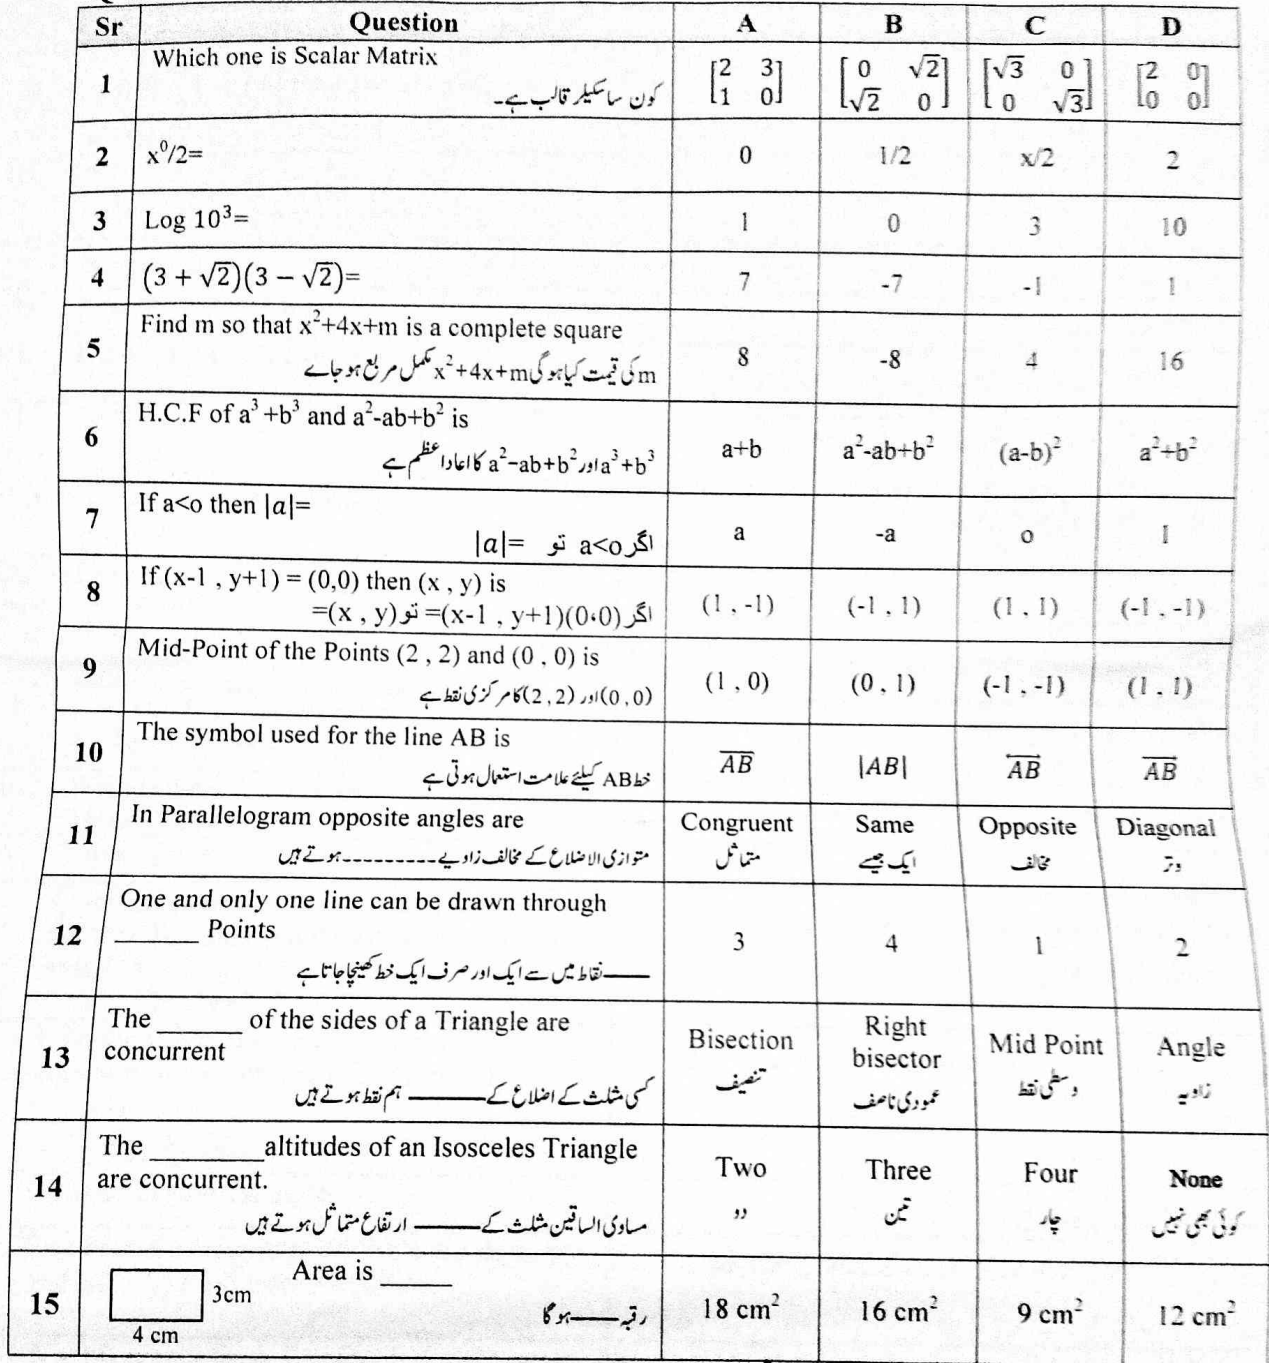 Sr Question A B C D
1 Which one is Scalar Matrix
کون سا سکیلر قالب ہے۔
[2 3 1 0] [0 √2 √2 0] [√3 0 0 √3] [2 0 0 0]
2 x⁰/2= 0 1/2 x/2 2
3 Log 10³= 1 0 3 10
4 (3 + √2)(3 − √2)= 7 -7 -1 1
5 Find m so that x²+4x+m is a complete square
m کی قیمت کیا ہو گی x²+4x+m مکمل مربع ہو جاے
8 -8 4 16
6 H.C.F of a³ +b³ and a²-ab+b² is
a³+b³ اور a²−ab+b² کا عاداعظم ہے
a+b a²-ab+b² (a-b)² a²+b²
7 If a<o then |a|=
اگر a<o تو |a|=
a -a o 1
8 If (x-1 , y+1) = (0,0) then (x , y) is
اگر (x-1 , y+1)(0،0)= تو (x , y)=
(1 , -1) (-1 , 1) (1 , 1) (-1 , -1)
9 Mid-Point of the Points (2 , 2) and (0 , 0) is
(0,0) اور (2,2) کا مرکزی نقطہ ہے
(1 , 0) (0 , 1) (-1 , -1) (1 , 1)
10 The symbol used for the line AB is
خط AB کیلئے علامت استعمال ہوتی ہے
AB |AB| AB AB
11 In Parallelogram opposite angles are
متوازی الاضلاع کے مخالف زاویے ---------ہوتے ہیں
Congruent Same Opposite Diagonal
متماثل ایک جیسے مخالف وتر
12 One and only one line can be drawn through
______ Points
——نقاط میں سے ایک اور صرف ایک خط کھینچا جاتا ہے
3 4 1 2
13 The ______ of the sides of a Triangle are
concurrent
کسی مثلث کے اضلاع کے ——— ہم نقطہ ہوتے ہیں
Bisection Right bisector Mid Point Angle
تنصیف عمودی ناصف وسطی نقطہ زاویہ
14 The ________altitudes of an Isosceles Triangle
are concurrent.
مساوی الساقین مثلث کے ——— ارتفاع متماثل ہوتے ہیں
Two Three Four None
دو تین چار کوئی بھی نہیں
15 Area is _____
3cm
4 cm
رقبہ ——ہو گا
18 cm² 16 cm² 9 cm² 12 cm²